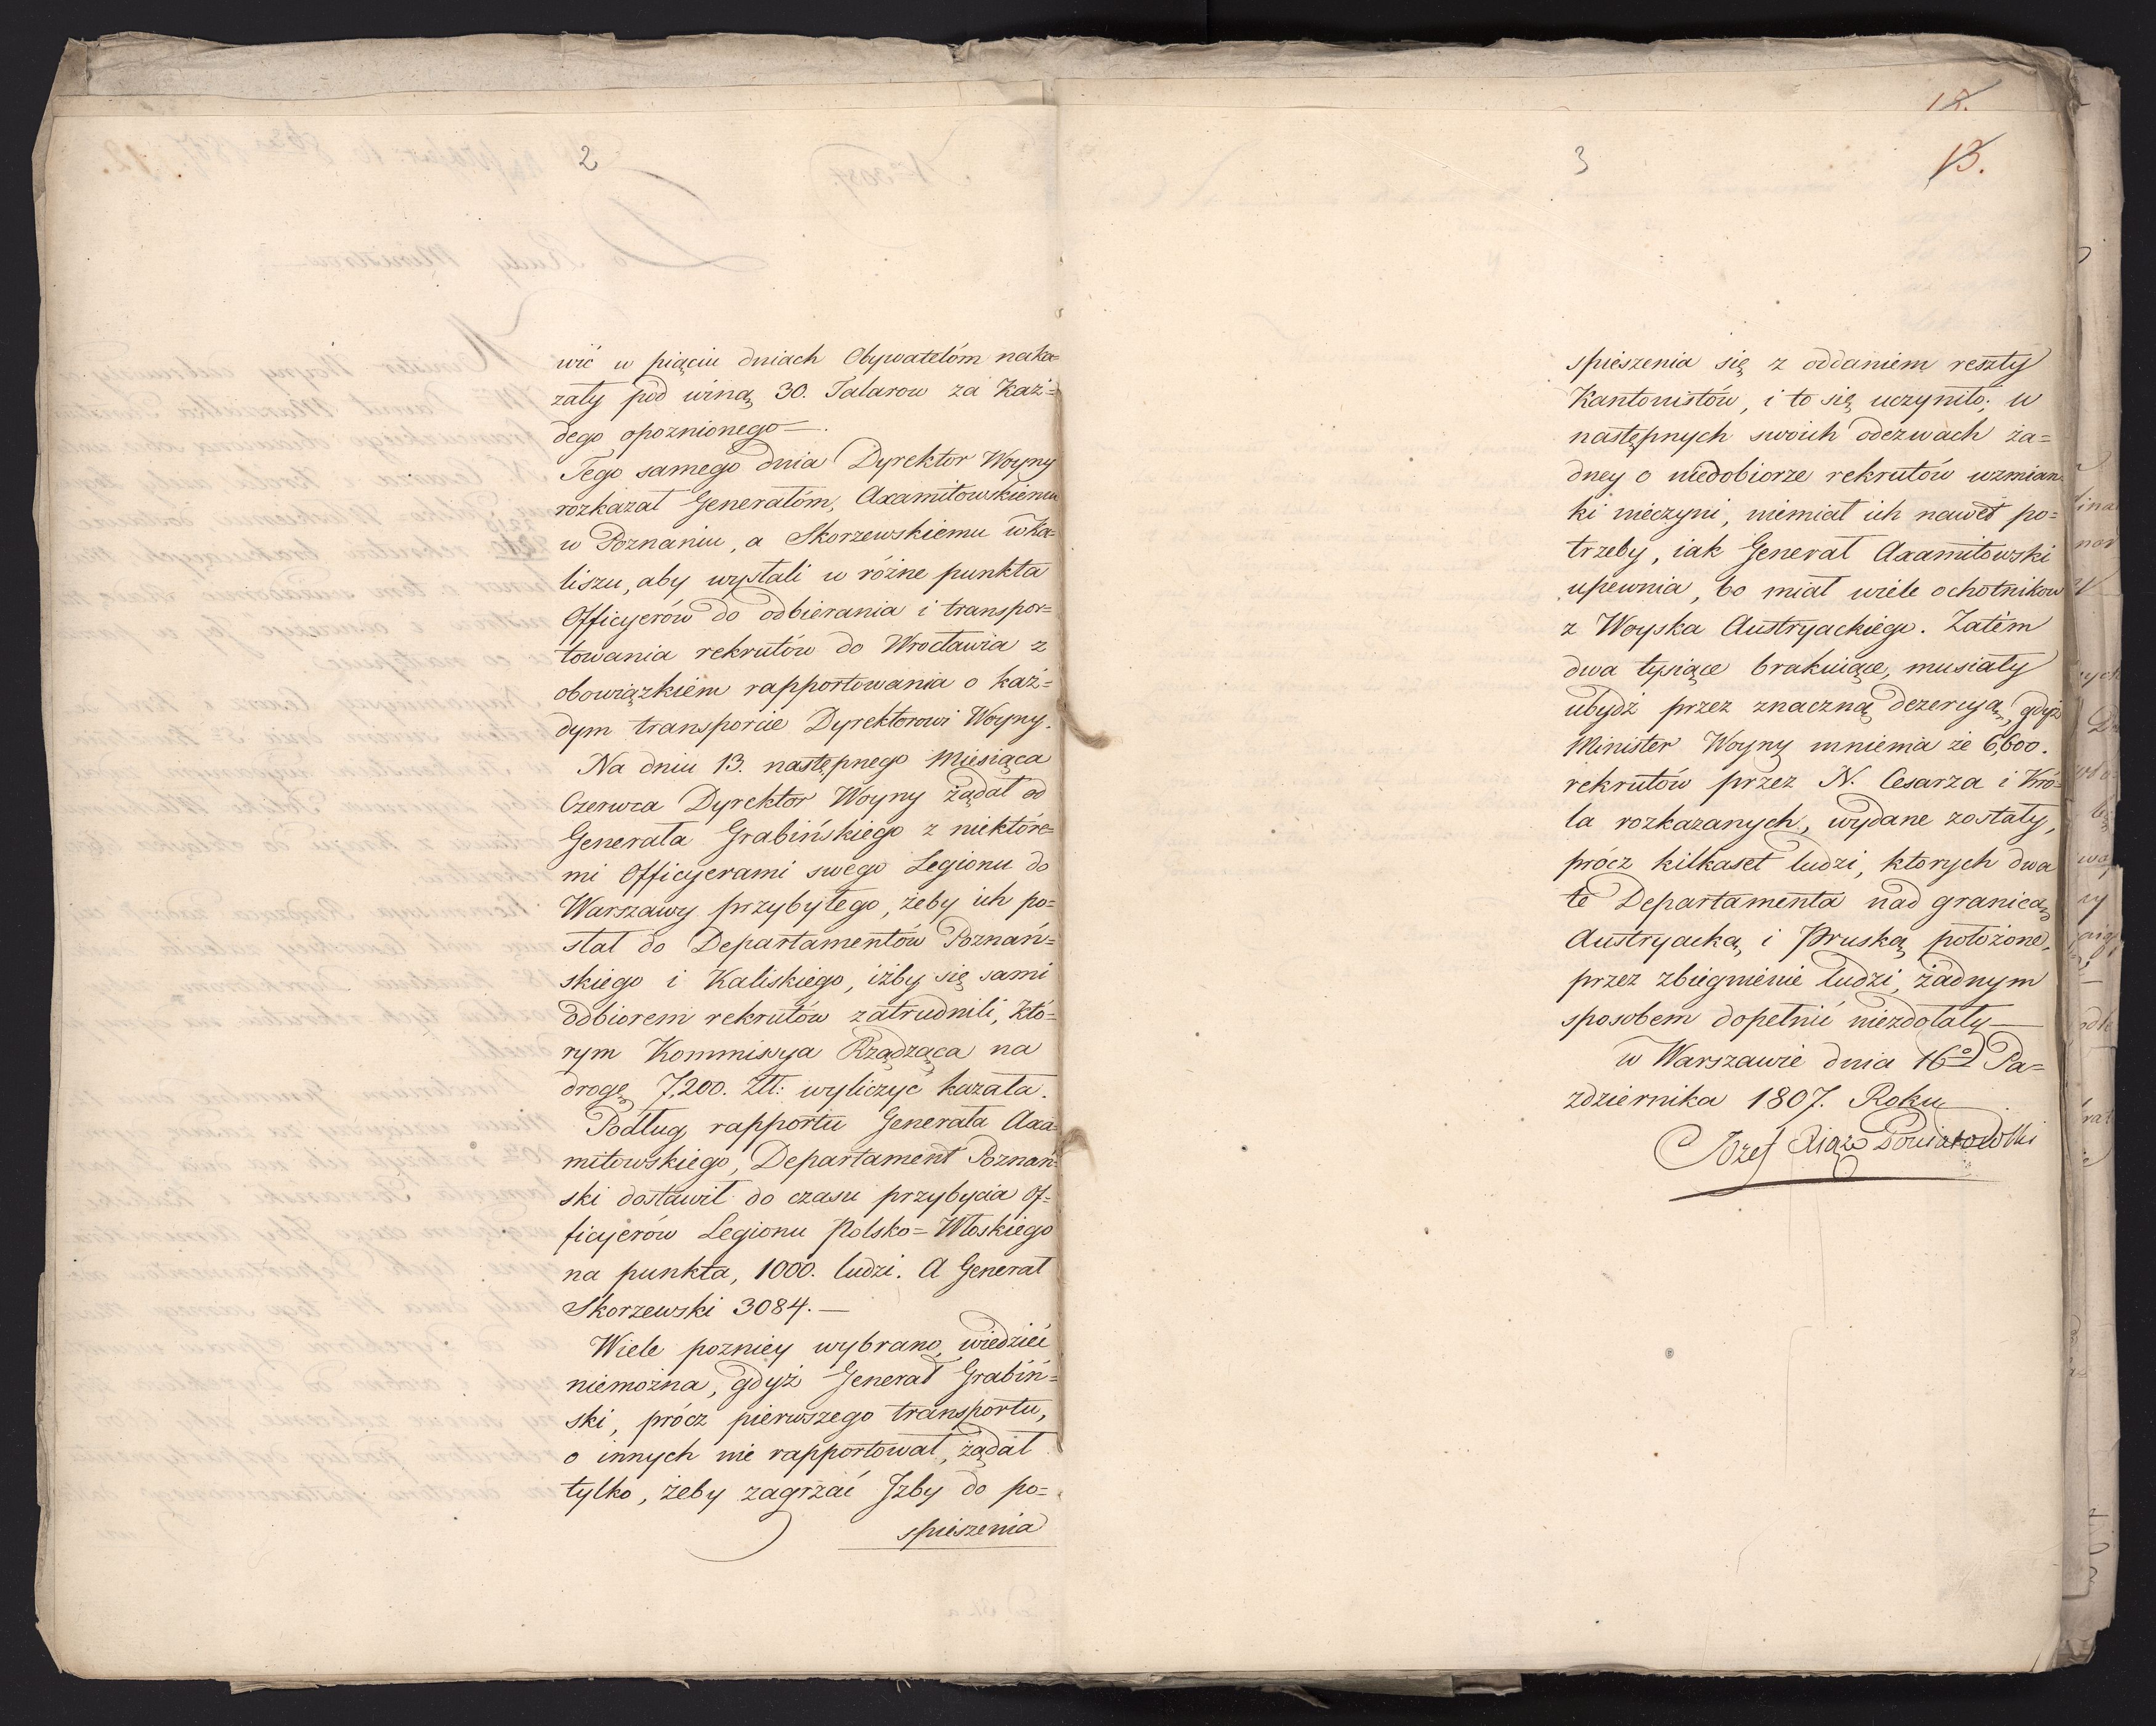 2
wić w pięciu dniach Obywatelóm naka=
zały pod winą 30. Talarow za Każ=
dego opoznionego —.
Tego samego dnia Dyrektor Woyny
rozkazał Generałóm, Axamitowskiemu
w Poznaniu, a Skorzewskiemu w Ka=
liszu, aby wysłali w różne punkta
Officyerów do odbierania i transpor=
towania rekrutów do Wrocławia z
obowiązkiem rapportowania o każ=
dym transporcie Dyrektorowi Woyny.
Na dniu 13. następnego Miesiąca
Czerwca Dyrektor Woyny żądał od
Generała Grabińskiego z niektóre=
mi Officyerami swego Legionu do
Warszawy przybyłego, żeby ich po=
słał do Departamentów Poznań=
skiego i Kaliskiego, iżby się sami
odbiorem rekrutów zatrudnili, któ=
rym Kommissya Rządząca na
drogę 7,200. Złł: wyliczyć kazała.
Podług rapportu Generała Axa=
mitowskiego, Departament Poznań=
ski dostawił do czasu przybycia Of=
ficyerów Legionu Polsko=Włoskiego
na punkta, 1000. ludzi. A Generał
Skorzewski 3084. —
Wiele pozniey wybrano, wiedzieć
niemożna, gdyż Generał Grabiń=
ski, prócz pierwszego transportu,
o innych nie rapportował, żądał
tylko, żeby zagrzać Jzby do po=
spieszenia
3
13.
spieszenia się z oddaniem reszty
Kantonistów, i to się uczyniło; w
następnych swoich odezwach ża=
dney o niedobiorze rekrutów wzmian=
ki nieczyni, niemiał ich nawet po=
trzeby, iak Generał Axamitowski
upewnia, bo miał wiele ochotnikow
z Woyska Austryackiego. Zatém
dwa tysiące brakuiące, musiały
ubydź przez znaczną dezercyą, gdyż
Minister Woyny mniema że 6,600.
rekrutów przez N. Cesarza i Kró=
la rozkazanych, wydane zostały,
prócz kilkaset ludzi, ktorych dwa
te Departamenta nad granicą
Austryacką i Pruską położone,
przez zbiegnienie ludzi, żadnym
sposobem dopełnić niezdołały —
w Warszawie dnia 16º Pa=
zdziernika 1807. Roku
Józef Xiąże Poniatowski